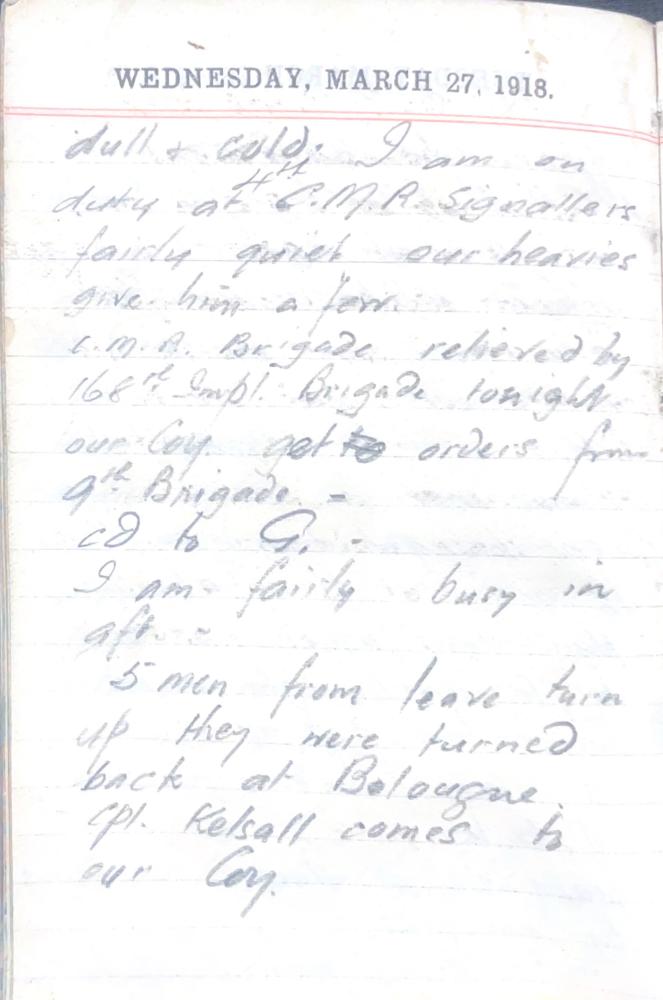 WEDNESDAY, MARCH 27, 1918.
dull + cold. I am on
duty at 4th C.M.R. Signallers
fairly quiet our heavies
give him a few.
C.M.R. Brigade relieved by
168th Impl. Brigade tonight.
our Coy get to orders from
9th Brigade -
cd to G. -
I am fairly busy in
aft. -
5 men from leave turn
up they were turned
back at Bolougne.
Cpl. Kelsall comes to
our Coy.